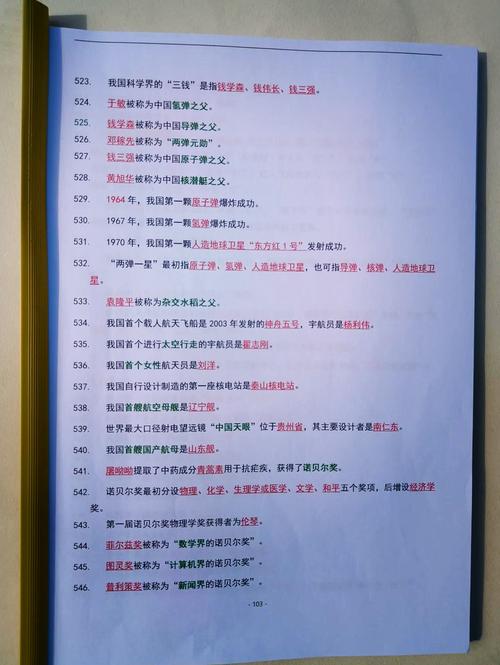 523. 我国科学界的“三钱”是指钱学森、钱伟长、钱三强。
524. 于敏被称为中国氢弹之父。
525. 钱学森被称为中国导弹之父。
526. 邓稼先被称为“两弹元勋”。
527. 钱三强被称为中国原子弹之父。
528. 黄旭华被称为中国核潜艇之父。
529. 1964 年，我国第一颗原子弹爆炸成功。
530. 1967 年，我国第一颗氢弹爆炸成功。
531. 1970 年，我国第一颗人造地球卫星“东方红 1 号”发射成功。
532. “两弹一星”最初指原子弹、氢弹、人造地球卫星，也可指导弹、核弹、人造地球卫
星。
533. 袁隆平被称为杂交水稻之父。
534. 我国首个载人航天飞船是 2003 年发射的神舟五号，宇航员是杨利伟。
535. 我国首个进行太空行走的宇航员是翟志刚。
536. 我国首个女性航天员是刘洋。
537. 我国自行设计制造的第一座核电站是秦山核电站。
538. 我国首艘航空母舰是辽宁舰。
539. 世界最大口径射电望远镜“中国天眼”位于贵州省，其主要设计者是南仁东。
540. 我国首艘国产航母是山东舰。
541. 屠呦呦提取了中药成分青蒿素用于抗疟疾，获得了诺贝尔奖。
542. 诺贝尔奖最初分设物理、化学、生理学或医学、文学、和平五个奖项，后增设经济学
奖。
543. 第一届诺贝尔奖物理学奖获得者为伦琴。
544. 菲尔兹奖被称为“数学界的诺贝尔奖”。
545. 图灵奖被称为“计算机界的诺贝尔奖”。
546. 普利策奖被称为“新闻界的诺贝尔奖”。
- 103 -